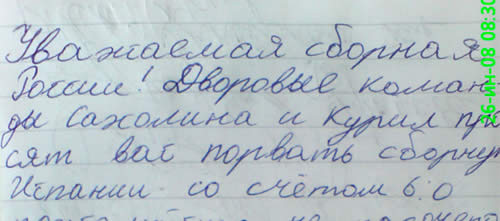 Уважаемая сборная
России! Дворовые коман
ды Сахолина и Курил про
сят вас порвать сборну
Испании со счётом 6:0
26-ИН-08 08:30